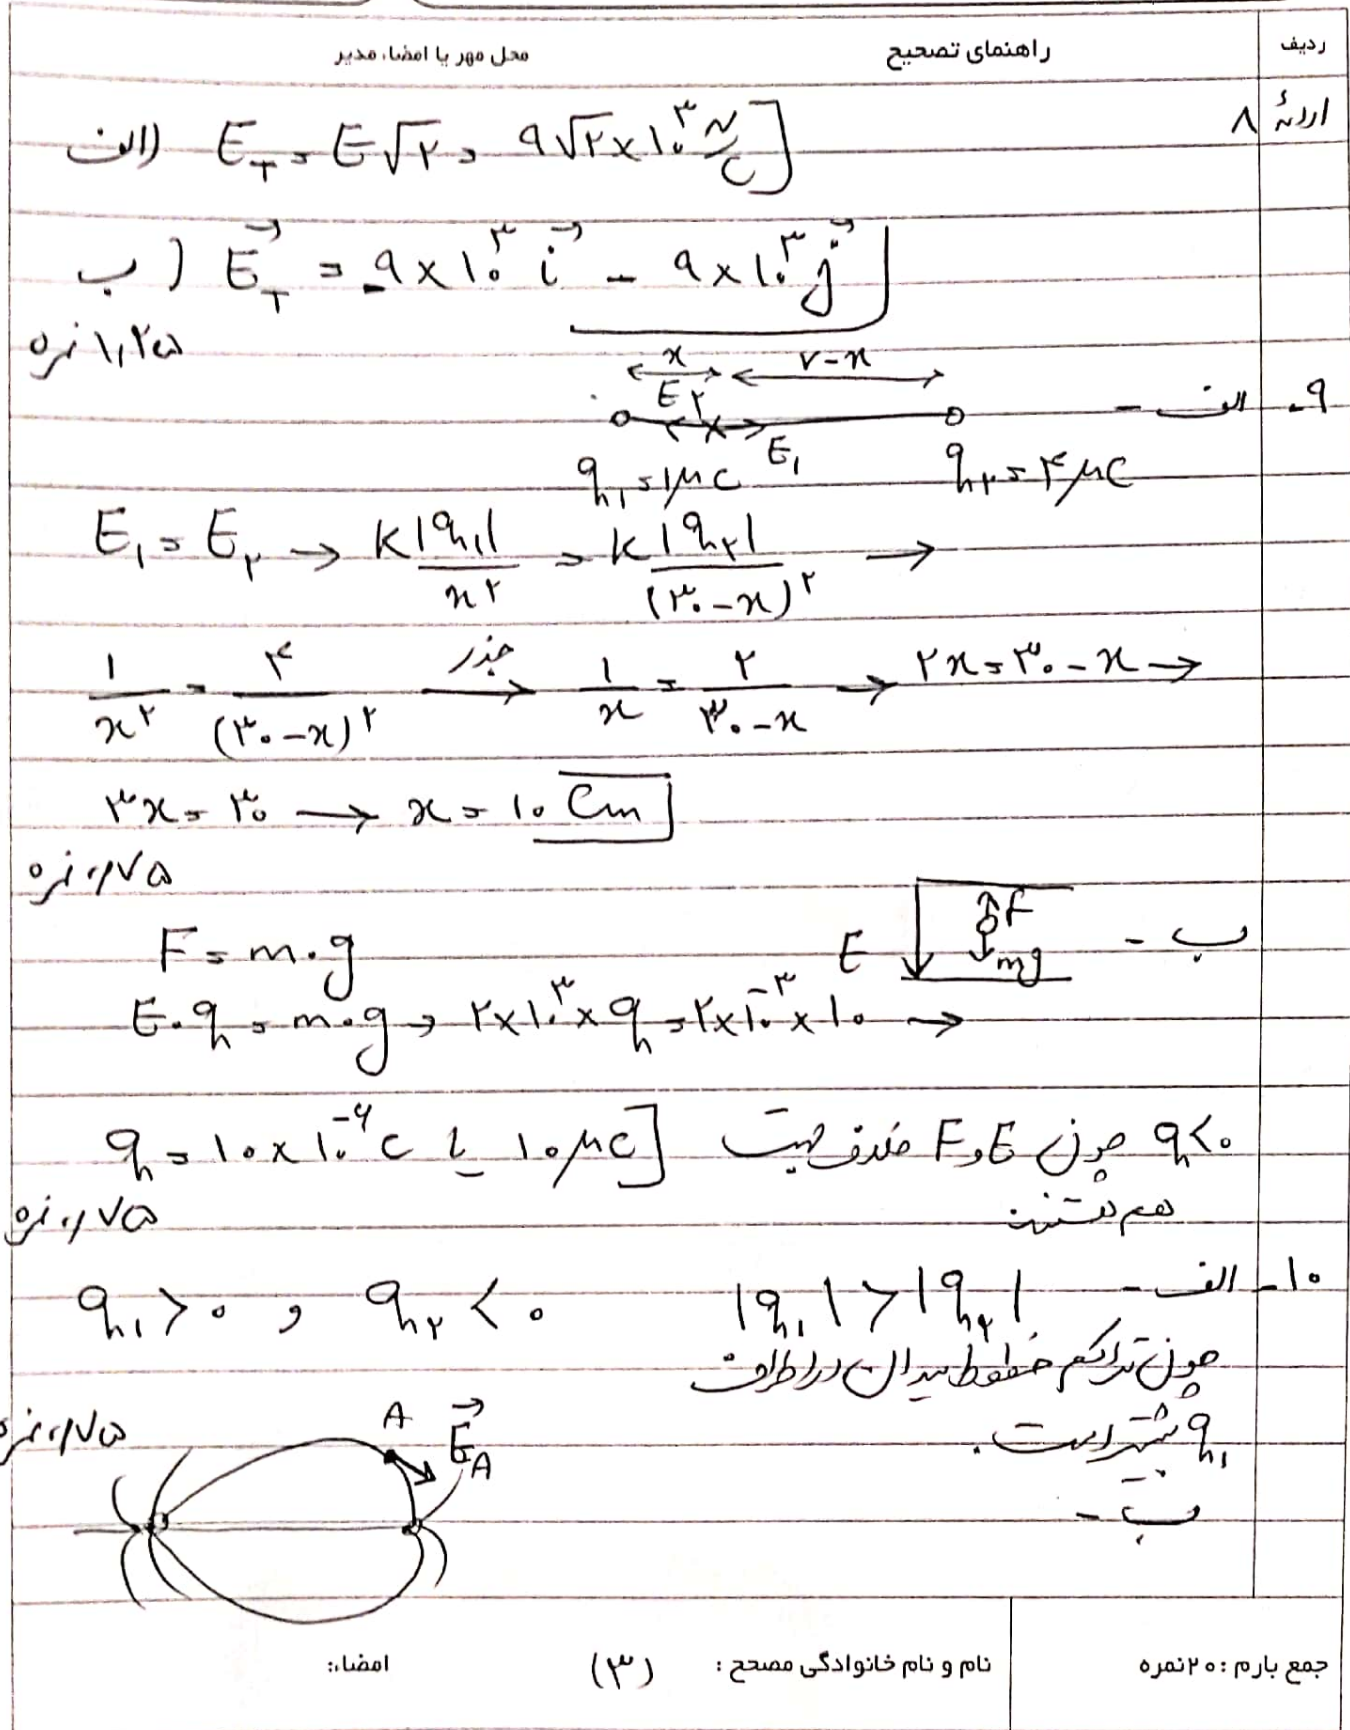 ردیف راهنمای تصحیح محل مهر یا امضاء مدیر
ادامهٔ ۸
الف) E_T = E√۲ = ۹√۲×۱۰^۳ N/C
ب) E⃗_T = -۹×۱۰^۳ i⃗ - ۹×۱۰^۳ j⃗
۱,۲۵ نمره
x r-x
۹- الف-
E۲ E۱
q۱=۱μc q۲=۴μc
E۱ = E۲ → K|q۱|/x^۲ = K|q۲|/(۳۰-x)^۲ →
۱/x^۲ = ۴/(۳۰-x)^۲ جذر → ۱/x = ۲/۳۰-x → ۲x=۳۰-x →
۳x=۳۰ → x=۱۰ cm
۰,۷۵ نمره
ب- E F mg
F = m.g
E.q = m.g → ۲×۱۰^۳×q = ۲×۱۰^-۳×۱۰ →
q = ۱۰×۱۰^-۶ c یا ۱۰μc q<۰ چون E و F خلاف جهت
هم هستند
۰,۷۵ نمره
۱۰- الف- |q۱|>|q۲| q۱>۰ و q۲<۰
چون تراکم خطوط میدان در اطراف
q۱ بیشتر است.
۰,۷۵ نمره
ب-
A E⃗_A
جمع بارم : ۲۰ نمره نام و نام خانوادگی مصحح : (۳) امضاء: